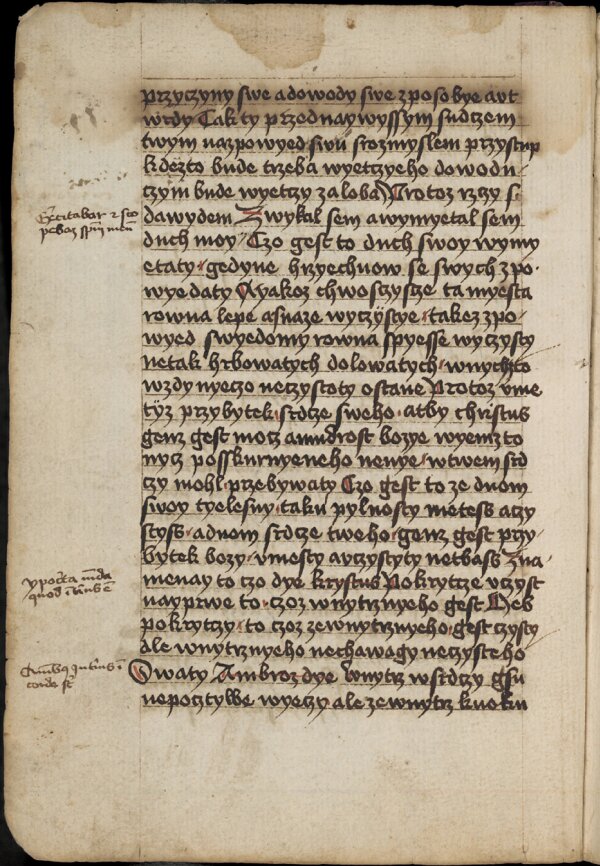 przyczyny swe a dowody swe zposobye a vt
wrdy Tak ty przed naywyssym sudczem
twym na zpowyed swu srozmyslem przystup
kdezto bude trzeba wyetczyeho dowodu
czym bude wyetczy zaloba Protoz rzzy s
dawydem Zwykal sem a wymyetal sem
duch moy Czo gest to duch swoy wymy
etaty gedyne hrzyechuow se swych zpo
wyedaty A yakoz chwoszczysze ta myesta
rowna lepe a snaze wyczystye takez zpo
wyed swyedomy rowna spyesse wyczysty
netak hrbowatych dolowatych wnychzto
wzdy nyeczo neczystoty ostane Protoz vme
tyz przybytek srdcze sweho atby christus
genz gest mocz a mudrost bozye wyemzto
nycz posskwrnyeneho nenye w twem srd
czy mohl przebywaty Czo gest to ze duom
swoy tyelesny taku pylnosty metess a czy
styss a duom srdcze tweho genz gest przy
bytek bozy vmesty a vczystyty netbass Zna
menay to czo dye krystus Pokrytcze vczyst
nayprwe to czoz wnytrznyeho gest Hes
pokrytczy to czoz zewnytrznyeho gest czysty
ale wnytrznyeho nechawagy neczysteho
Swaty Ambroz dye wnytrz w srdczy gsu
nepocztywe wyeczy ale zewnytrz k uoku